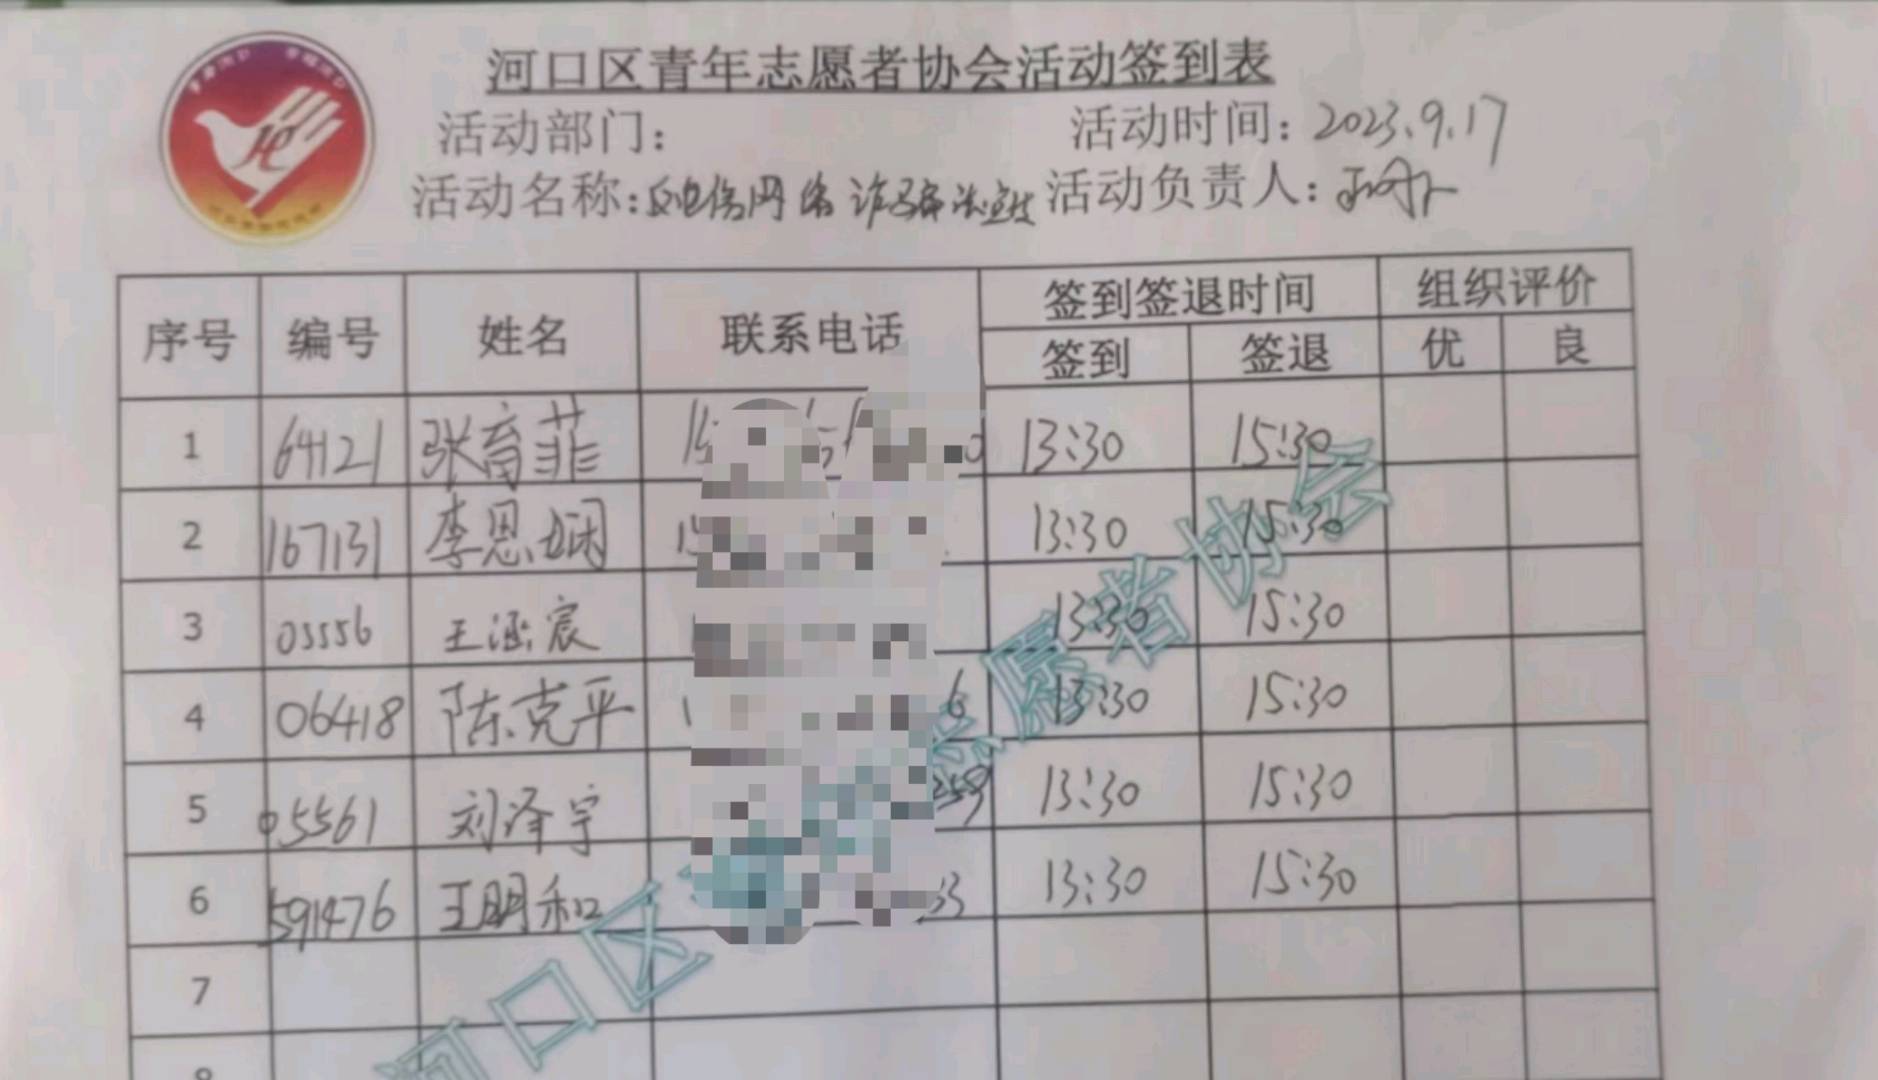 河口区青年志愿者协会活动签到表
活动部门：
活动时间：2023.9.17
活动名称：反电信网络诈骗
活动负责人：
序号 编号 姓名 联系电话 签到签退时间 组织评价
签到 签退 优 良
1 64121 张育菲 13:30 15:30
2 167131 李恩娴 13:30 15:30
3 05556 王涵宸 13:30 15:30
4 06418 陈克平 6 13:30 15:30
5 05561 刘泽宇 259 13:30 15:30
6 591476 王明和 33 13:30 15:30
7
8
河口区 愿者协会